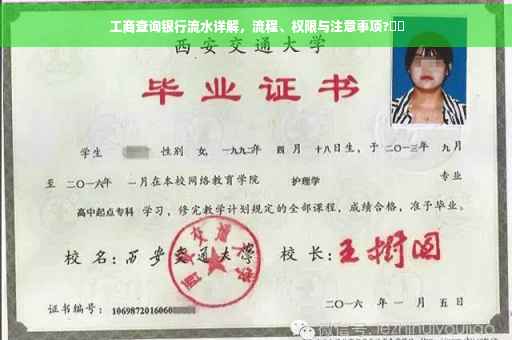 工商查询银行流水详解，流程、权限与注意事项?
西安交通大学
毕业证书
学生 性别 女，一九九二年 四 月 十八日生，于 二〇一三年 九月
至 二〇一六年 一月在本校网络教育学院 护理学 专业
高中起点专科 学习，修完教学计划规定的全部课程，成绩合格，准予毕业。
校 名：西安交通大学 校 长：王树国
西安交通大学
证书编号：1069872016060
二〇一六 年 一 月 五 日
微信号: jezhihuiyoujiao